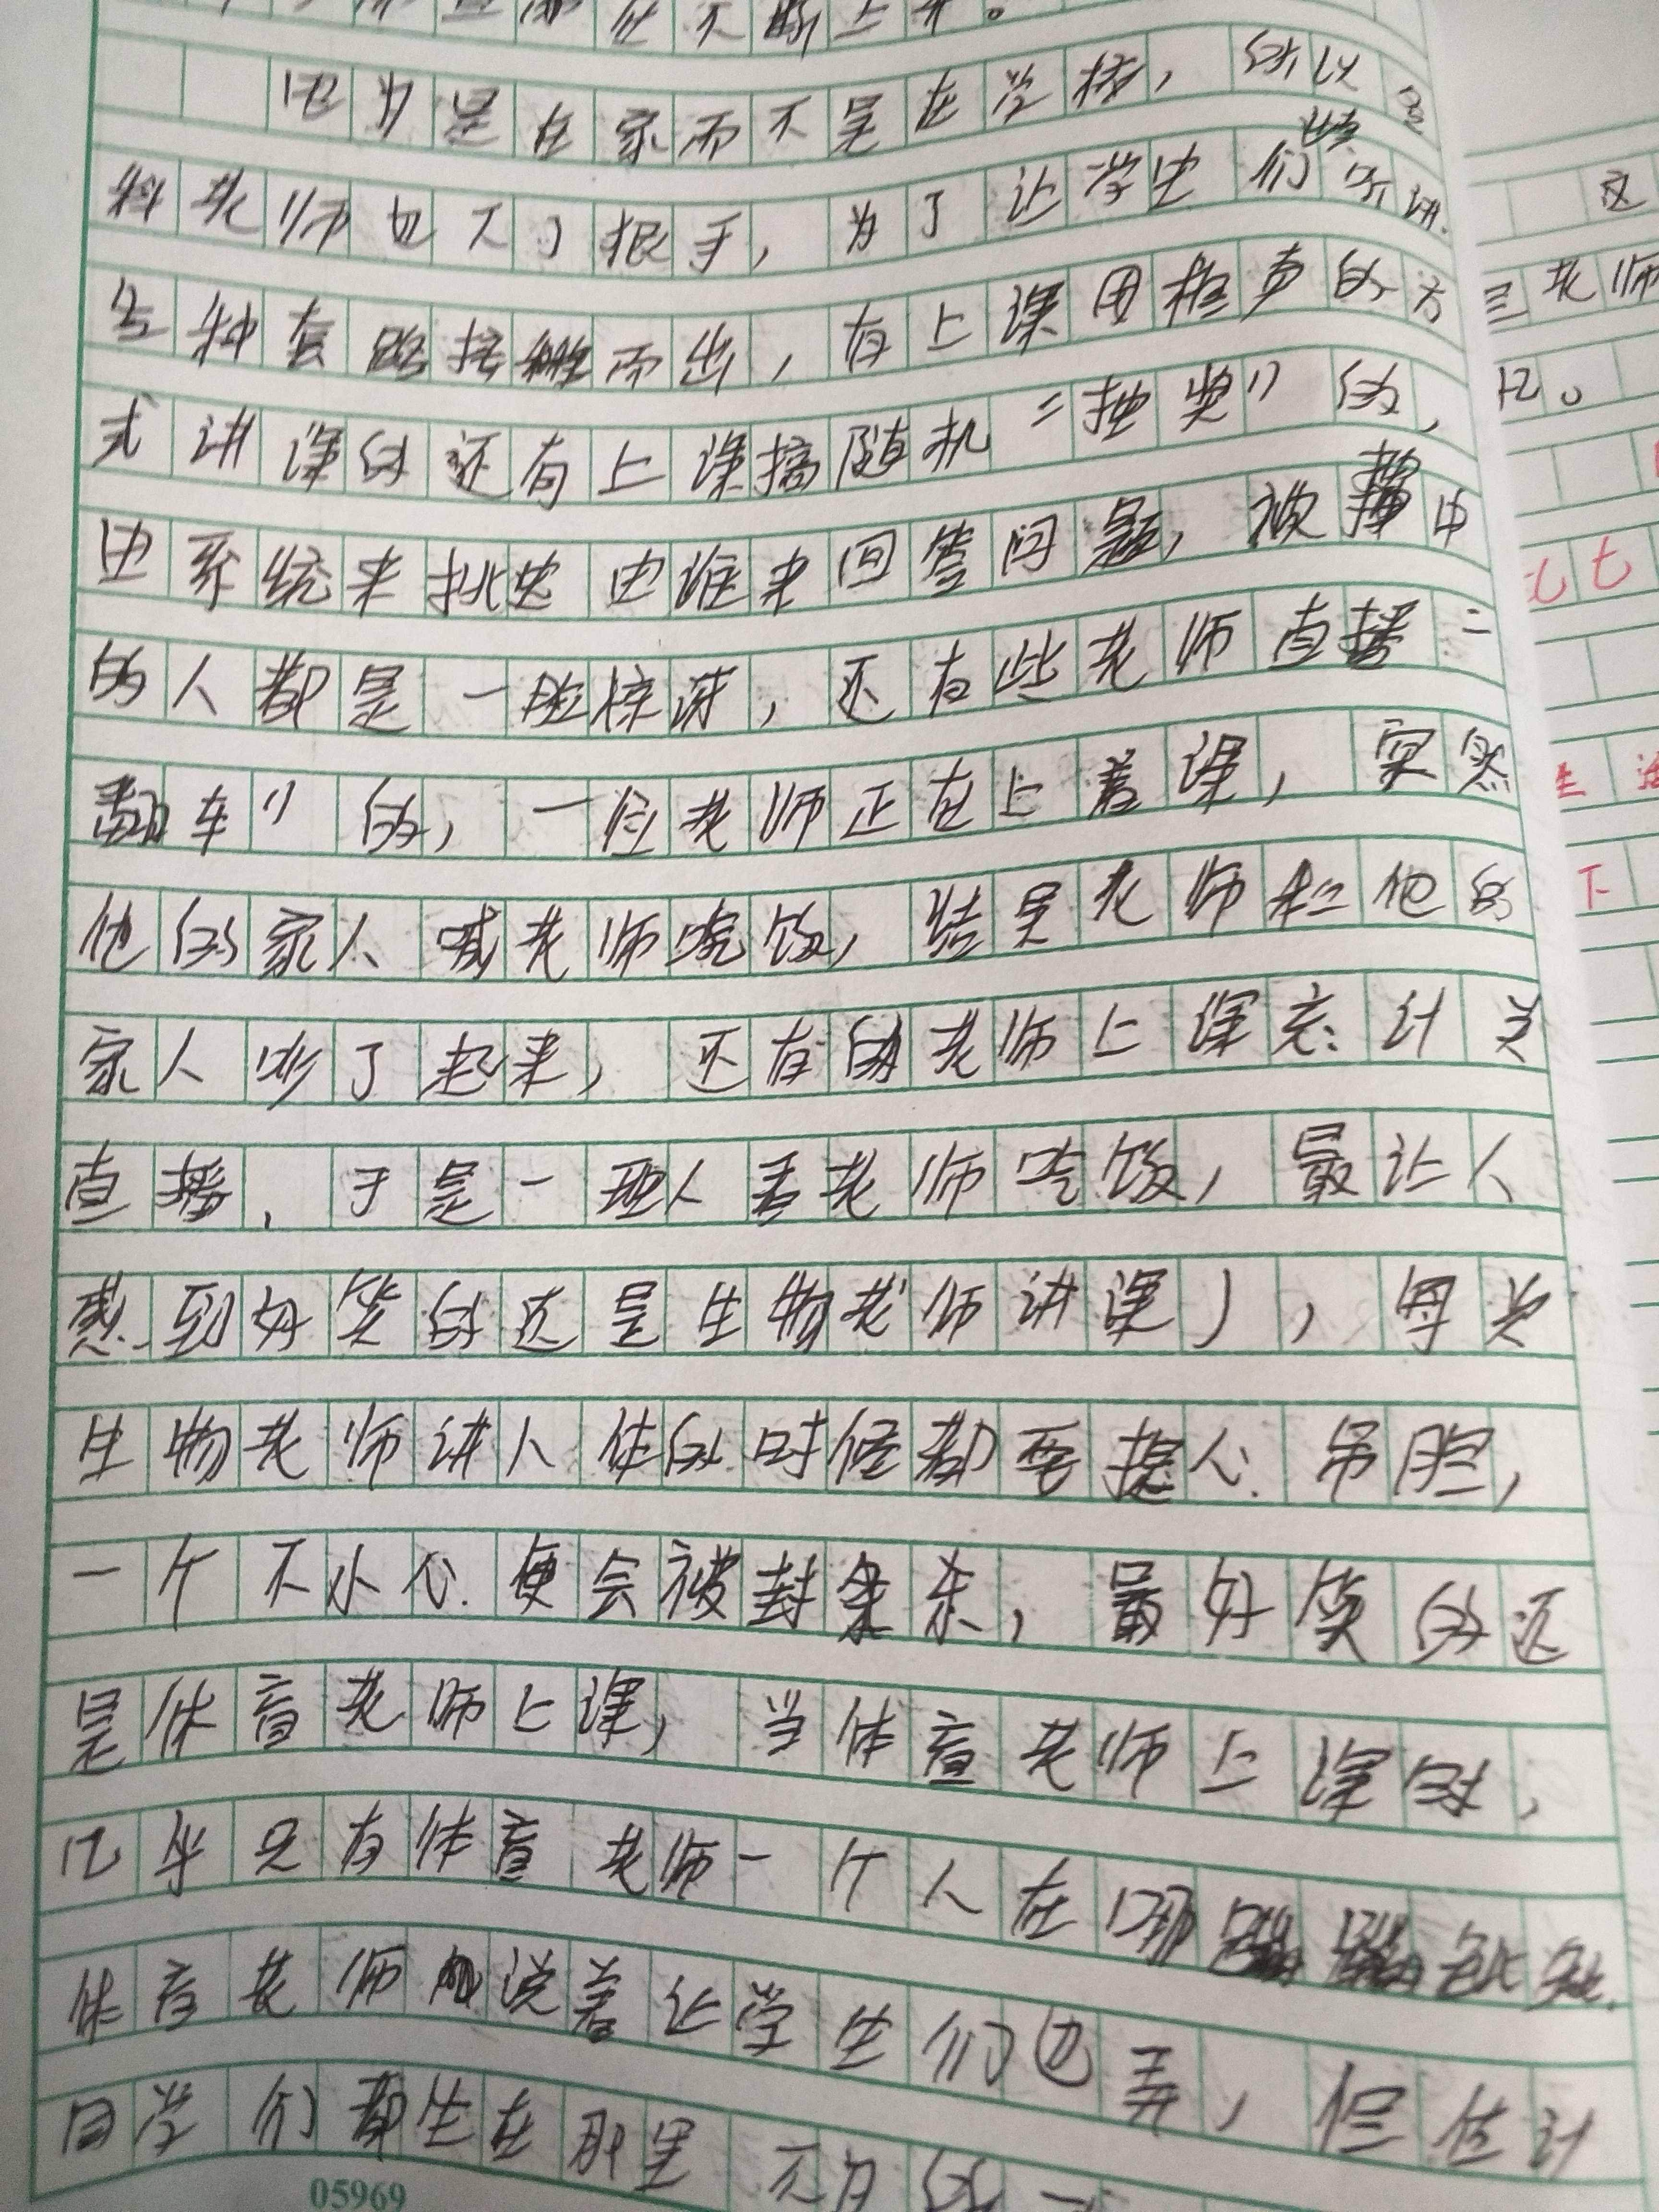 因为是在家而不是在学校，所以各
科老师也下了狠手，为了让学生们能听讲.
各种套路接憪而出，有上课用相声的方
式讲课的还有上课搞随机“抽奖”的，
由系统来挑选由谁来回答问题，被抽中
的人都是一脸惊讶，还有些老师直播“
翻车”的，一位老师正在上着课，突然
他的家人喊老师吃饭，结果老师和他的
家人吵了起来，还有的老师上课忘记关
直播，于是一班人看老师吃饭，最让人
感到好笑的还是生物老师讲课了，每当
生物老师讲人体的时候都要提心吊胆，
一个不小心便会被封杀，最好笑的还
是体育老师上课，当体育老师上课时，
几乎只有体育老师一个人在那
体育老师说着让学生们也弄，但估计
同学们都坐在那里
05969
这
老师
记。
生活
下